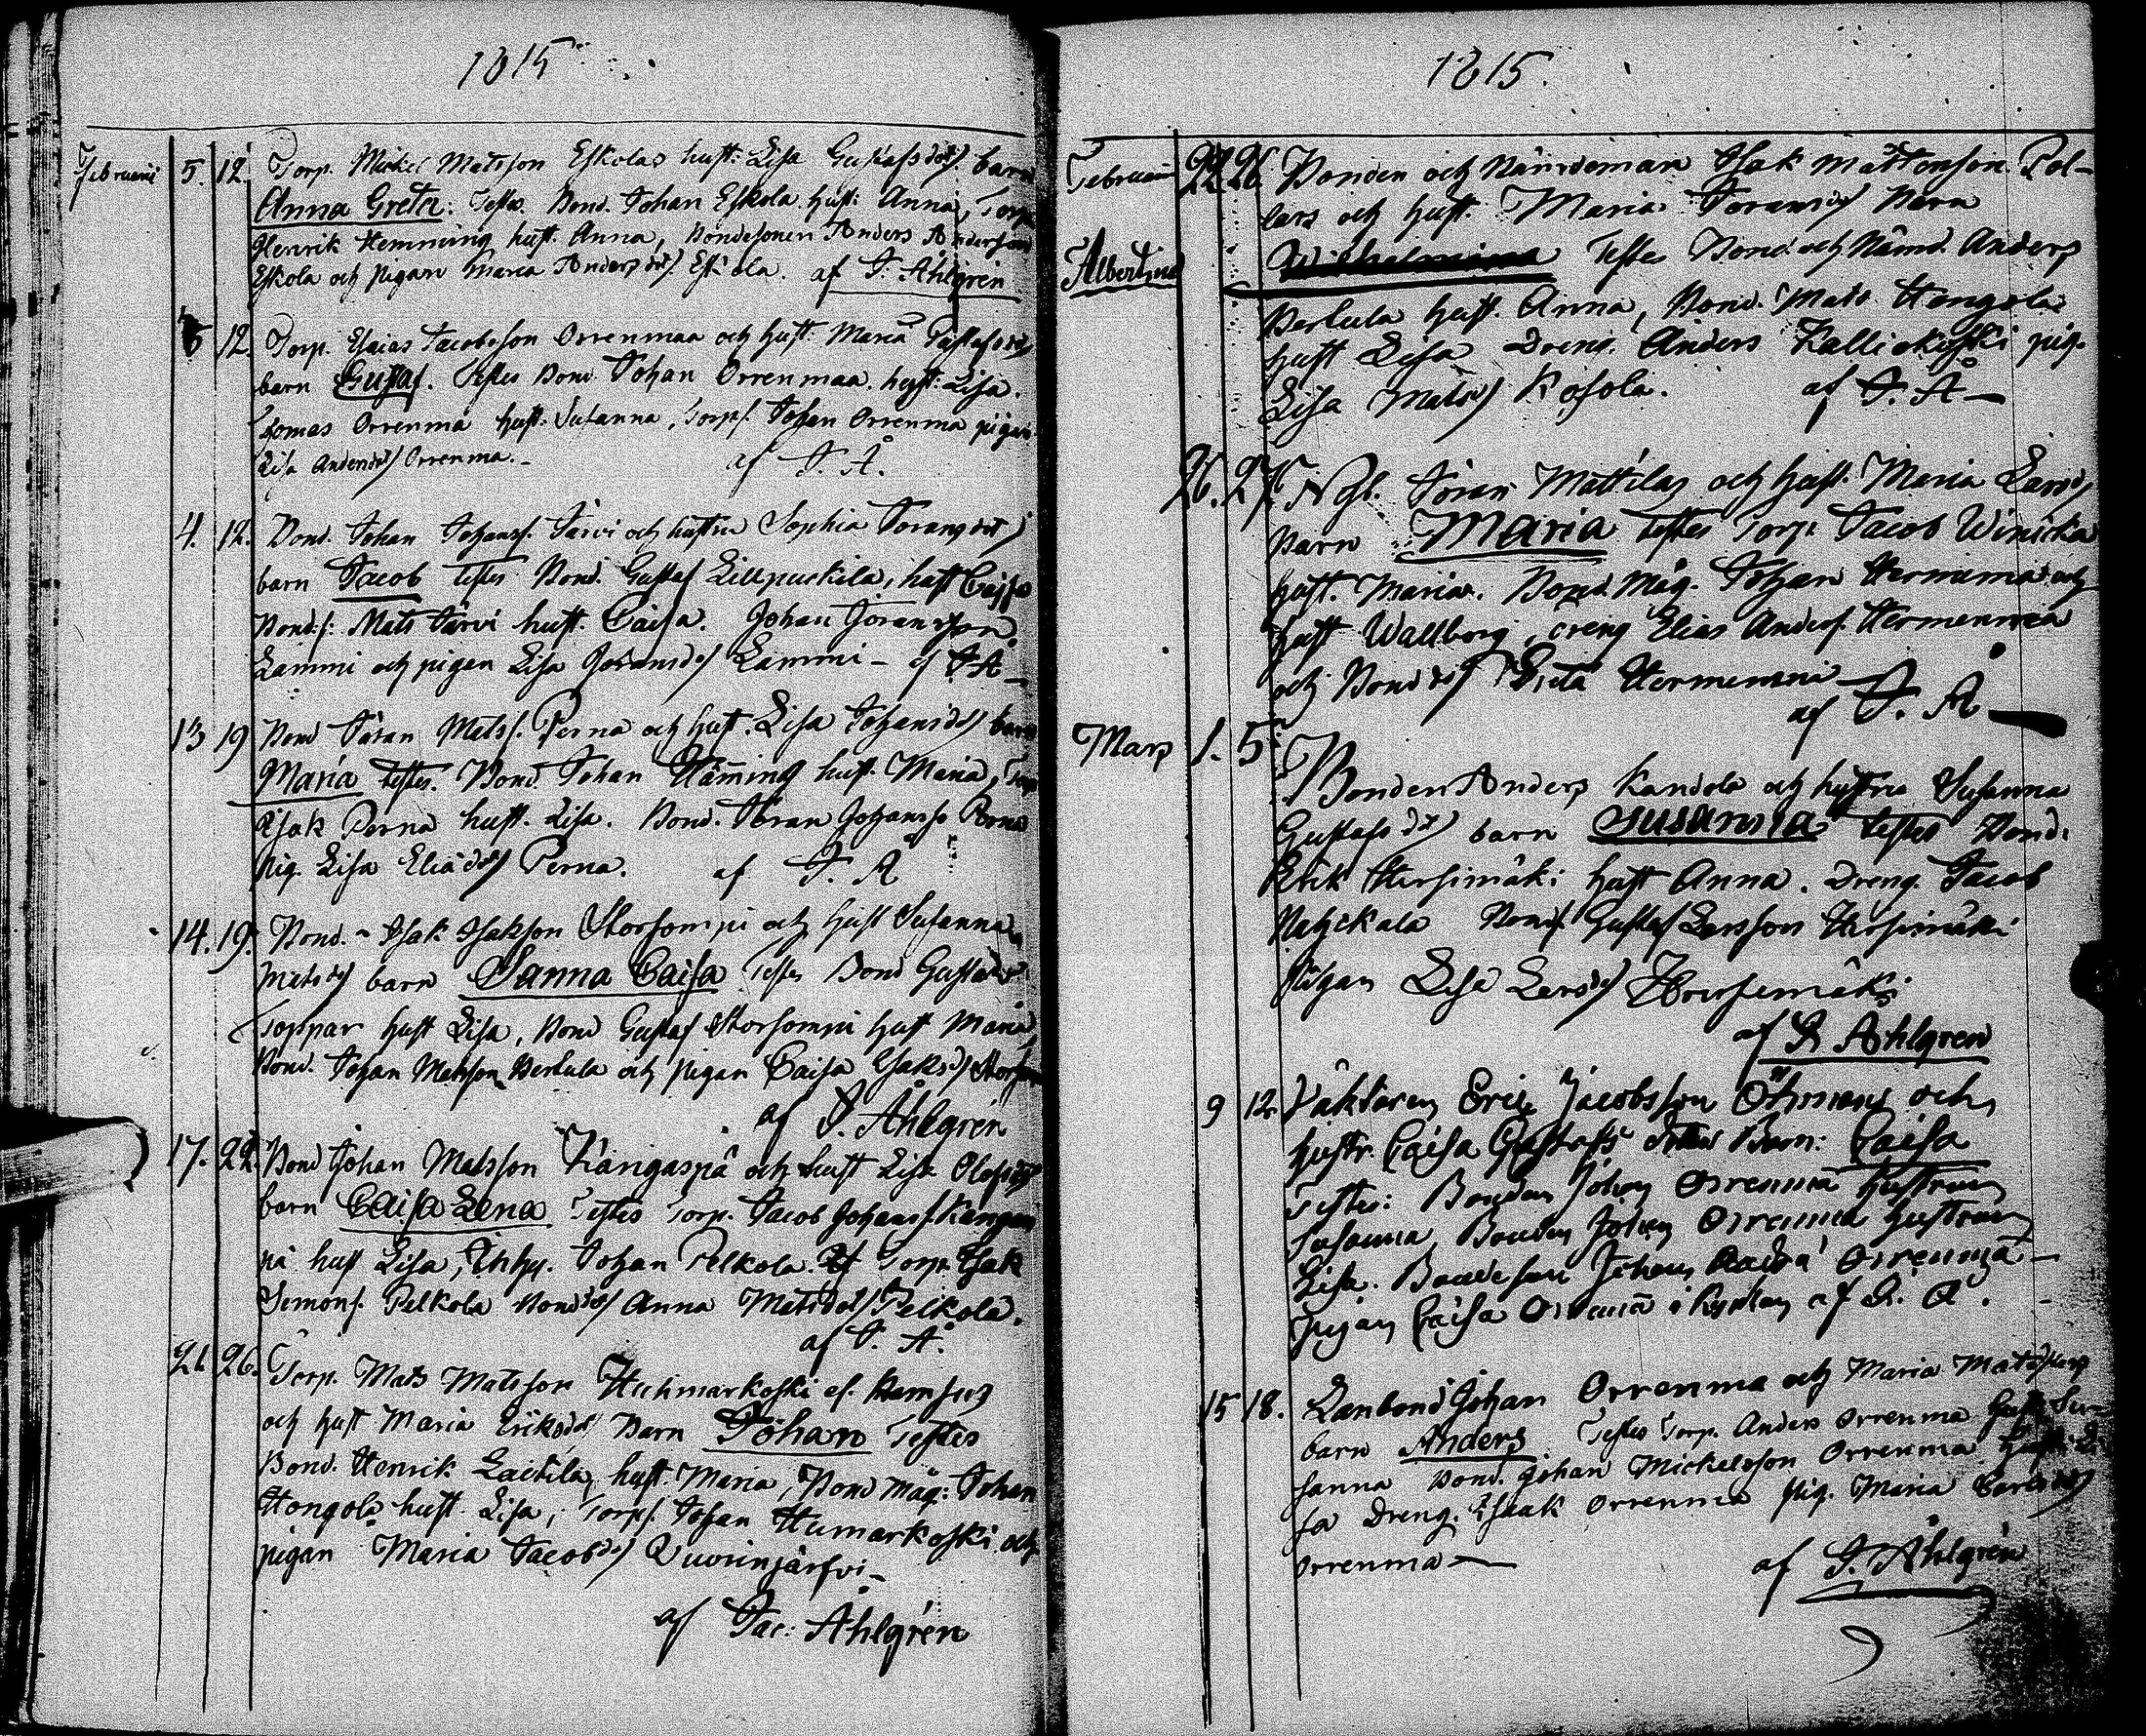 1815
Februarii 5. 12. Torp. Mickel Matsson Eskolas hust: Lisa Gustafsdotr barn
Anna Greta: Testes Bond. Johan Eskola hust: Anna, Torp
Henrik Hemming hust. Anna, Bondesonen Anders Andersson
Eskola och pigan Maria Andersdotr Eskola. af J. Åhlgren
5 12. Torp. Esaias Jacobsson Orrenmaa och hust: Maria
barn Gustaf. Testes Bond. Johan Orrenmaa hust: Lisa.
Tomas Orrenma hust: Susanna, Torps. Johan Orrenma pigan
Lisa Andersdr Orrenma. – af J. Å.
4. 12. Bond. Johan Johanss. Järvi och hustru Sophia Joransdotr
barn Jacob Testes Bond. Gustaf Lillpuckila, hust Caisa
Bonds: Mats Järvi hust. Caisa. Johan Joransson
Lammi och pigan Lisa Joransdr Lammi – af J. Å
13 19 Bond Jöran Matss. Perna och hust. Lisa Johansdr barn
Maria testes. Bond. Johan Häming hust. Maria, Torp
Isak Perna hust. Lisa. Bond. Jöran Johanss Perna
pig. Lisa Eliadr Perna. af J. Å
14. 19. Bond. – Isak Isakson Storsompi och hust Susanna
Matsdr barn Sanna Caisa Testes Bond Gustaf
Toppar hust Lisa, Bond Gustaf Storsompi hust Maria
Bond. Johan Matsson Berkula och pigan Caisa Isaksdr
af J. Åhlgren
17. 22. Bond Johan Matsson Kangaspä och hust Lisa Olofsdr
barn Caisa Lena Testes Torp. Jacob Johanss. Kangas
pä hust Lisa, Inhy. Johan Pelkola. Torp. Isak
Simons. Pelkola Bonddr Anna Matsdotr Pelkola.
af J. Å.
21 26. Torp. Mats Matsson Huhmarkoski
och hust Maria Eriksdr Barn Johan Testes
Bond. Henrik Lackila, hust. Maria, Bond Måg: Johan
Hongola hust. Lisa, Torps. Johan Humarkoski och
pigan Maria Jacobsdr Quorinjärfvi –
af Jac: Åhlgren
1815.
Februari 22 26 Bonden och Nämndeman Isak Mattonson Pol-
lars och hust. Maria Joransdr Barn
Albertina Wilhelmina Testes Bond. och Nämnd. Anders
Berkula hust. Anna, Bond. Mats Hongola
hust Lisa Dreng. Anders Kalliokoski pig.
Lisa Matsdr Kosola. af J. Å –
26. 27. Jöran Mattilas och hust. Maria Larsdr
Barn Maria testes Torp. Jacob Winicka
hust. Maria. Bond. Måg. Johan Hermanna och
hust Wallborg, dreng Elias Anders. Hermenmaa
och Bonddr Greta Hermenma
af J. Å
Mars 1. 5 Bonden Anders Kandola och hustru Susanna
Gustafsdr barn Susanna testes Bond.
Erik Hirsimäki hust Anna. Dreng. Jacob
Bonds. Gustaf Larsson Hirsimäki
Pigan Lisa Larsdr Hirsimäki
af J. Åhlgren
9 12. Väktaren Eric Jacobsson Öhman och
hustr. Caisa Gustafs dotter Barn: Caisa
Testes: Bonden Johan Orrenmä hustrun
Susanna, Bonden Johan Orrenmä hustrun
Lisa. Bondeson Johan Orrenmä –
Pigan Caisa Orrenmä i Kyrkan af J. Å.
15 18. Lanbond Johan Orrenma och Maria Mats
barn Anders Testes Torp. Anders Orrenma hust Su-
sanna Bond. Johan Mickelsson Orrenma hust. Li-
sa Dreng. Isaak Orrenma Pig. Maria Carlsdr
Orrenma – af J. Åhlgren